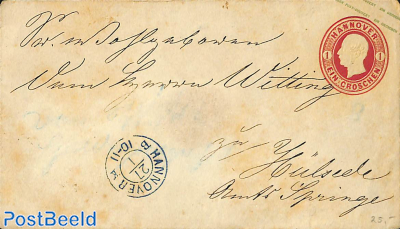 HANNOVER
1 1
EIN GROSCHEN
Sr. Wohlgeboren
dem Herrn Witting
zu
Hülsede
Amts Springe
HANNOVER
27
1
10-11
25,-
PostBeeld